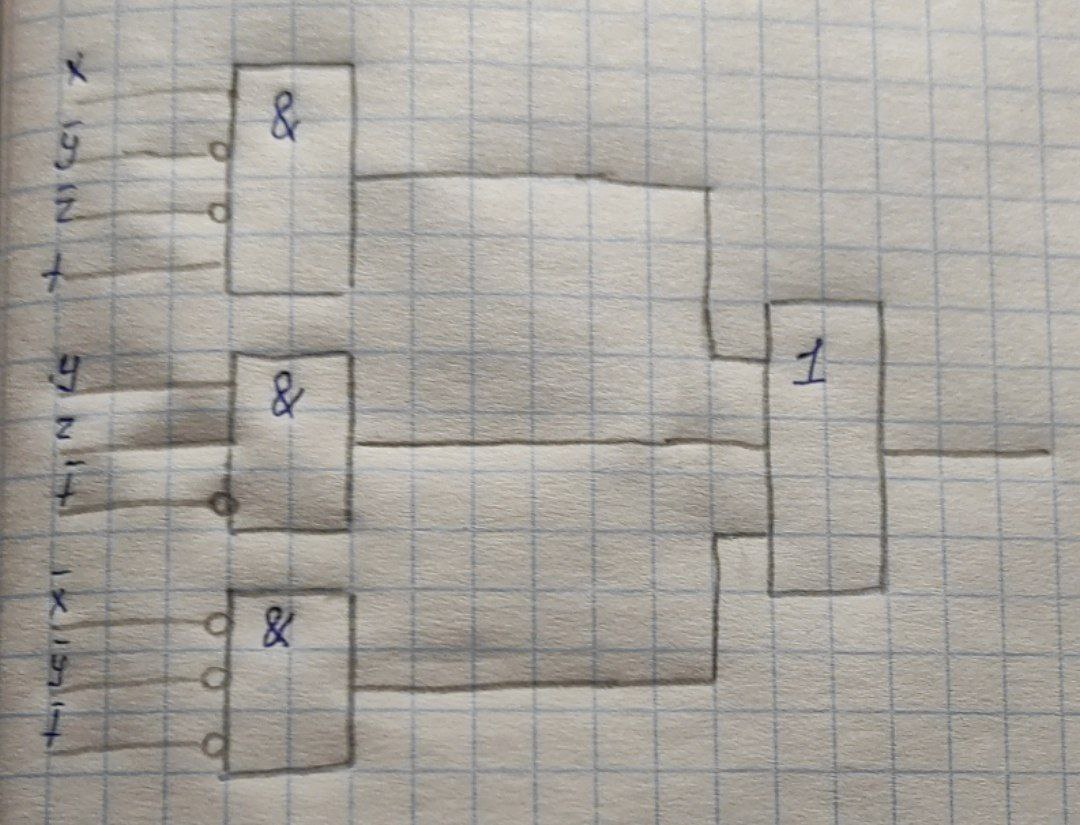 x
&
y̅
z̅
t
y
&
z
1
t̅
x̅
&
y̅
t̅